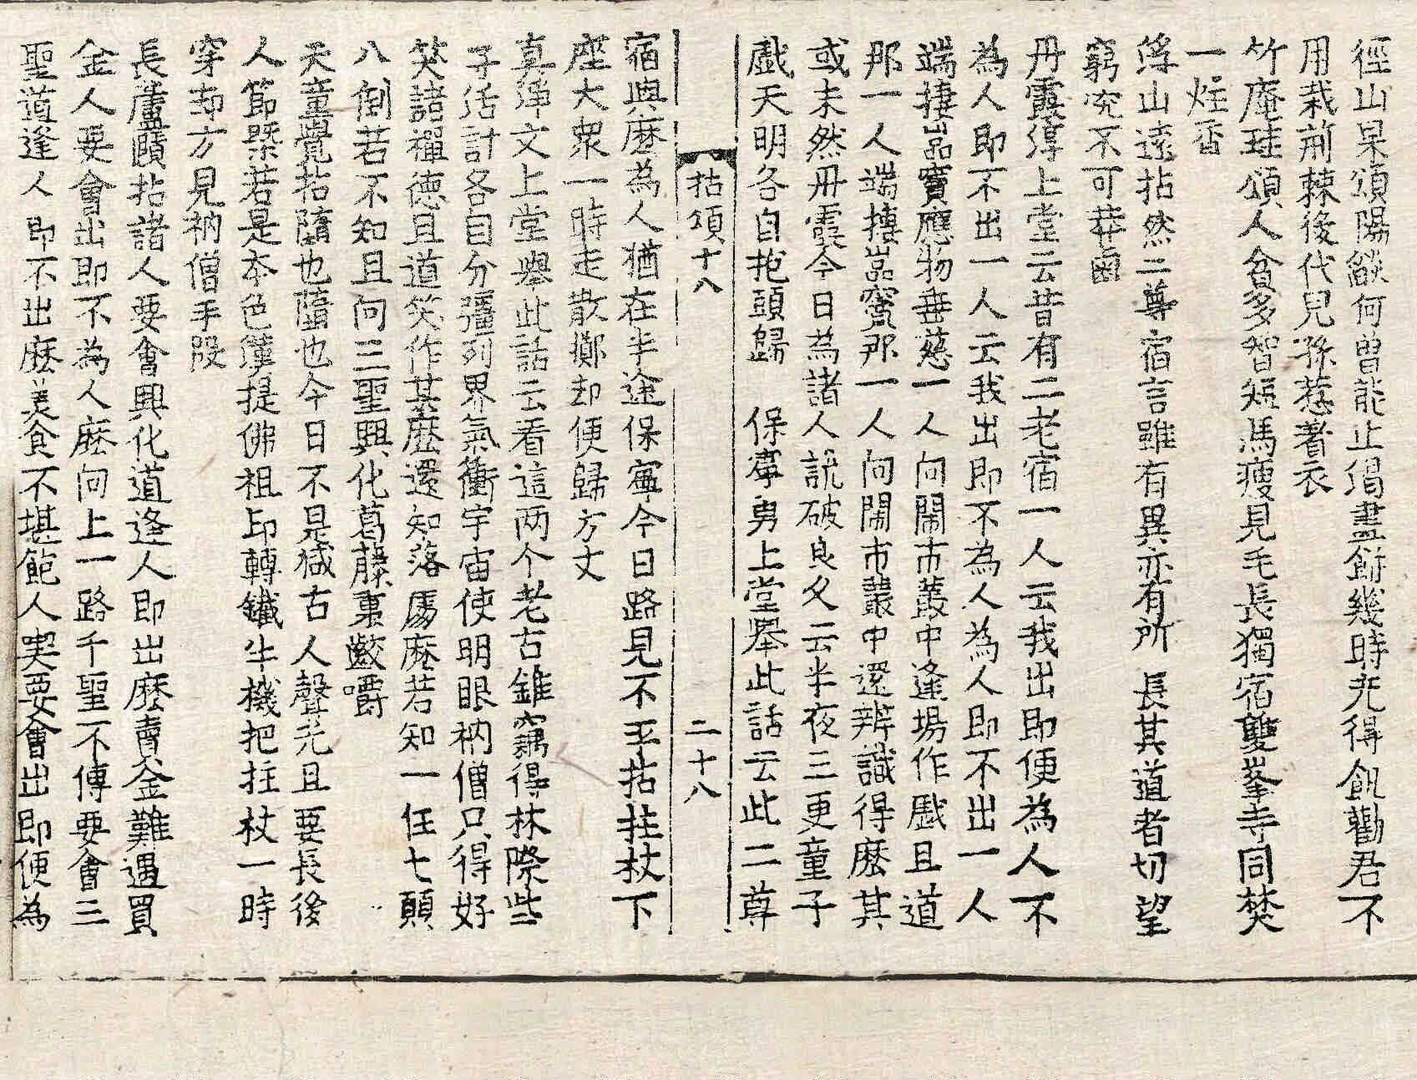 徑山杲頌陽燄何曾能止渴畫餅幾時充得飢勸君不
用栽荊棘後代兒孫惹著衣
竹庵珪頌人貧多智短馬瘦見毛長獨宿雙峯寺同焚
一炷香
浮山遠拈然二尊宿言雖有異亦有所 長其道者切望
窮究不可莽鹵
丹霞淳上堂云昔有二老宿一人云我出即便為人不
為人即不出一人云我出即不為人為人即不出一人
端捿品寶應物垂慈一人向鬧市叢中逢場作戲且道
那一人端捿品寶那一人向鬧市叢中還辨識得麽其
或未然丹霞今日為諸人說破良久云半夜三更童子
戲天明各自抱頭歸 保寧勇上堂舉此話云此二尊
拈頌十八 二十八
宿與麽為人猶在半途保寧今日路見不平拈拄杖下
座大衆一時走散擲却便歸方丈
真淨文上堂舉此話云看這两个老古錐竊得林際些
子活計各自分疆列界氣衝宇宙使明眼衲僧只得好
笑諸禪德且道笑作甚麽還知落處麽若知一任七顛
八倒若不知且向三聖興化葛藤裏齩嚼
天童覺拈隨也隨也今日不是減古人聲光且要長後
人節槩若是本色漢提佛祖印轉鐵牛機把拄杖一時
穿却方見衲僧手段
長蘆賾拈諸人要會興化道逢人即出麽賣金難遇買
金人要會出即不為人麽向上一路千聖不傳要會三
聖道逢人即不出麽美食不堪飽人喫要會出即便為